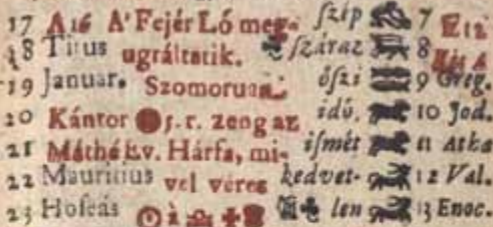 17 A 16 A' Fejér Ló meg- ſzép 7
18 Titus ugráltatik. ſzáraz 8
19 Januar. Szomoruan őſzi 9 Greg.
20 Kántor 5. r. zeng az idő. 10 Jod.
21 Máthé Ev. Hárfa, mi- iſmét 11 Atha
22 Mauritius vel véres kedvet- 12 Val.
23 Hoſeás len 13 Enoc.